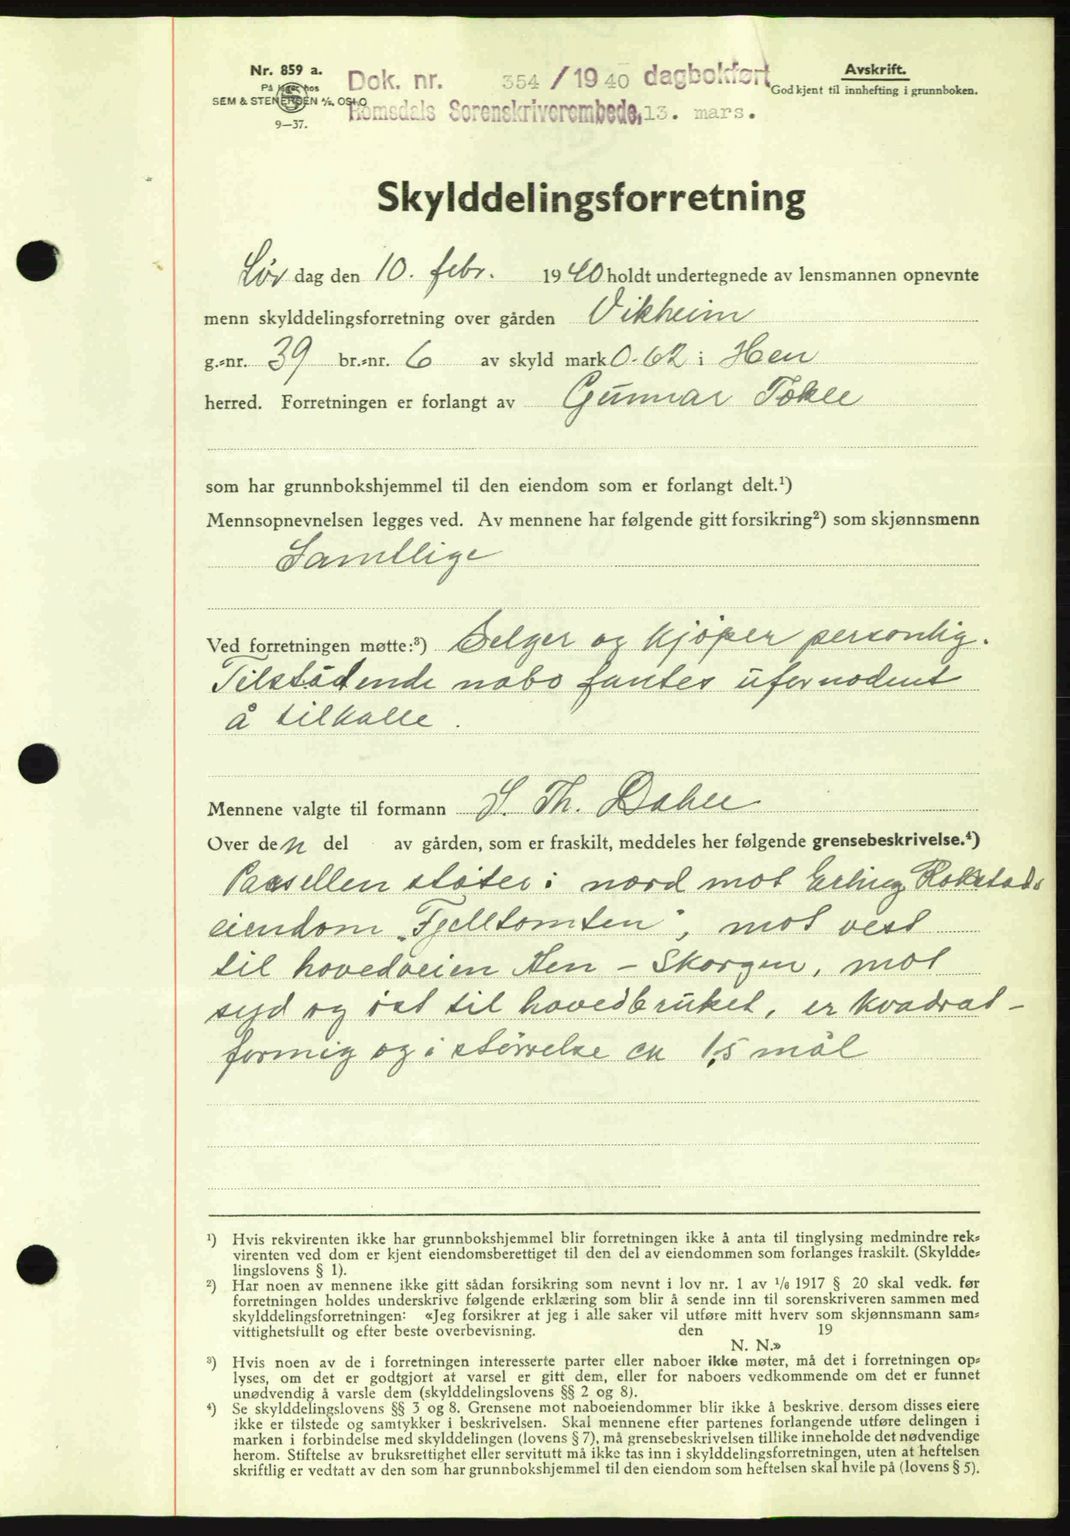 Nr. 859 a.
På lager hos
SEM & STENERSEN A/S, OSLO
9—37.
Dok. nr. 354 / 19 40 dagbokført
Romsdals Sorenskriverembede, 13. mars.
Avskrift.
Godkjent til innhefting i grunnboken.
Skylddelingsforretning
Lør dag den 10. febr. 1940 holdt undertegnede av lensmannen opnevnte
menn skylddelingsforretning over gården Vikheim
g.-nr. 39 br.-nr. 6 av skyld mark 0.62 i Hen
herred. Forretningen er forlangt av Gunnar Tokle
som har grunnbokshjemmel til den eiendom som er forlangt delt.¹)
Mennsopnevnelsen legges ved. Av mennene har følgende gitt forsikring²) som skjønnsmenn
Samtlige
Ved forretningen møtte:³) Selger og kjøper personlig.
Tilstødende nabo fantes ufornødent
å tilkalle.
Mennene valgte til formann S. Th. Dahle
Over den del av gården, som er fraskilt, meddeles her følgende grensebeskrivelse.⁴)
Parsellen støter i nord mot Erling Rokstads
eiendom „Fjelltomten", mot vest
til hovedveien Hen – Skorgen, mot
syd og øst til hovedbruket, er kvadrat-
formig og i størrelse ca 1,5 mål
¹) Hvis rekvirenten ikke har grunnbokshjemmel blir forretningen ikke å anta til tinglysing medmindre rek-
virenten ved dom er kjent eiendomsberettiget til den del av eiendommen som forlanges fraskilt. (Skyldde-
lingslovens § 1).
²) Har noen av mennene ikke gitt sådan forsikring som nevnt i lov nr. 1 av 1/6 1917 § 20 skal vedk. før
forretningen holdes underskrive følgende erklæring som blir å sende inn til sorenskriveren sammen med
skylddelingsforretningen: «Jeg forsikrer at jeg i alle saker vil utføre mitt hverv som skjønnsmann sam-
vittighetsfullt og efter beste overbevisning. den 19
N. N.»
³) Hvis noen av de i forretningen interesserte parter eller naboer ikke møter, må det i forretningen op-
lyses, om det er godtgjort at varsel er gitt dem, eller for naboers vedkommende om det er funnet
unødvendig å varsle dem (skylddelingslovens §§ 2 og 8).
⁴) Se skylddelingslovens §§ 3 og 8. Grensene mot naboeiendommer blir ikke å beskrive, dersom disses eiere
ikke er tilstede og samtykker i beskrivelsen. Skal mennene efter partenes forlangende utføre delingen i
marken i forbindelse med skylddelingen (lovens § 7), må grensebeskrivelsen tillike inneholde det nødvendige
herom. Stiftelse av bruksrettighet eller servitutt må ikke tas inn i skylddelingsforretningen, uten at heftelsen
skriftlig er vedtatt av den som har grunnbokshjemmel til den eiendom som heftelsen skal hvile på (lovens § 5).